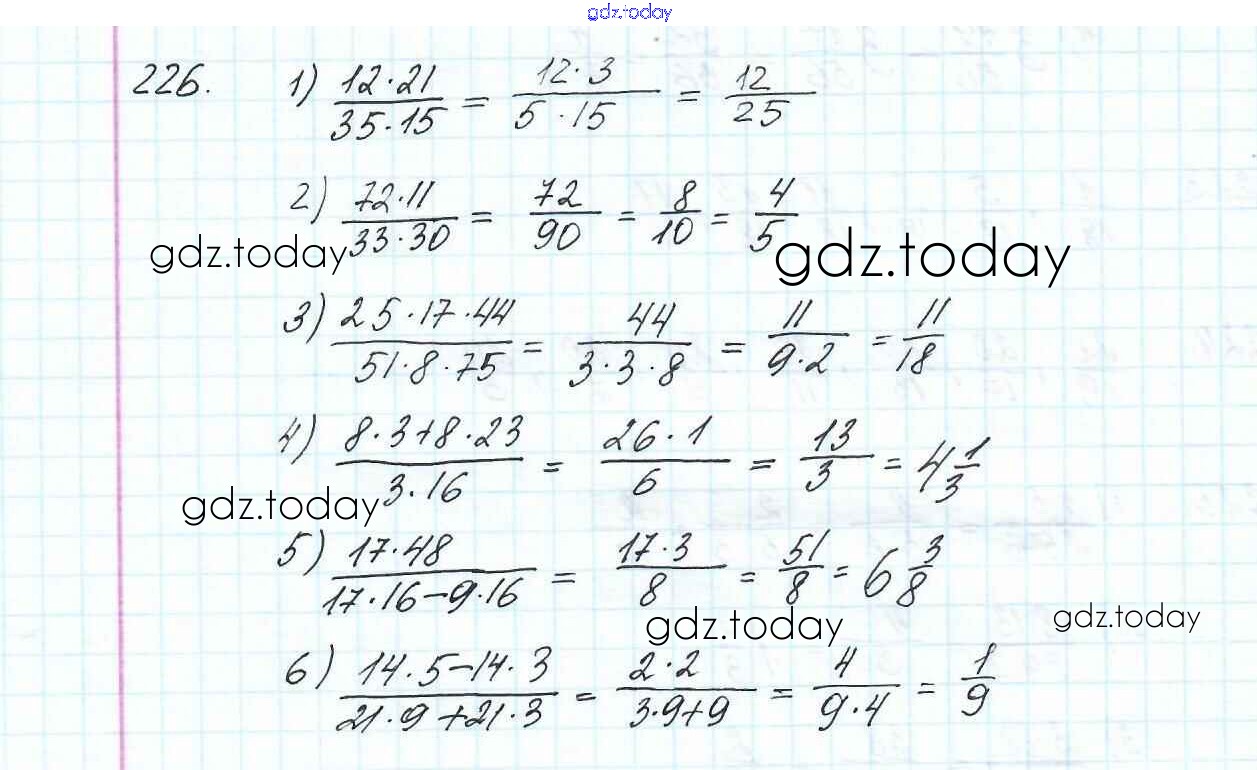 gdz.today
226. 1) 12·21/35·15 = 12·3/5·15 = 12/25
2) 72·11/33·30 = 72/90 = 8/10 = 4/5
gdz.today gdz.today
3) 25·17·44/51·8·75 = 44/3·3·8 = 11/9·2 = 11/18
4) 8·3+8·23/3·16 = 26·1/6 = 13/3 = 4 1/3
gdz.today
5) 17·48/17·16-9·16 = 17·3/8 = 51/8 = 6 3/8
gdz.today gdz.today
6) 14·5-14·3/21·9+21·3 = 2·2/3·9+9 = 4/9·4 = 1/9